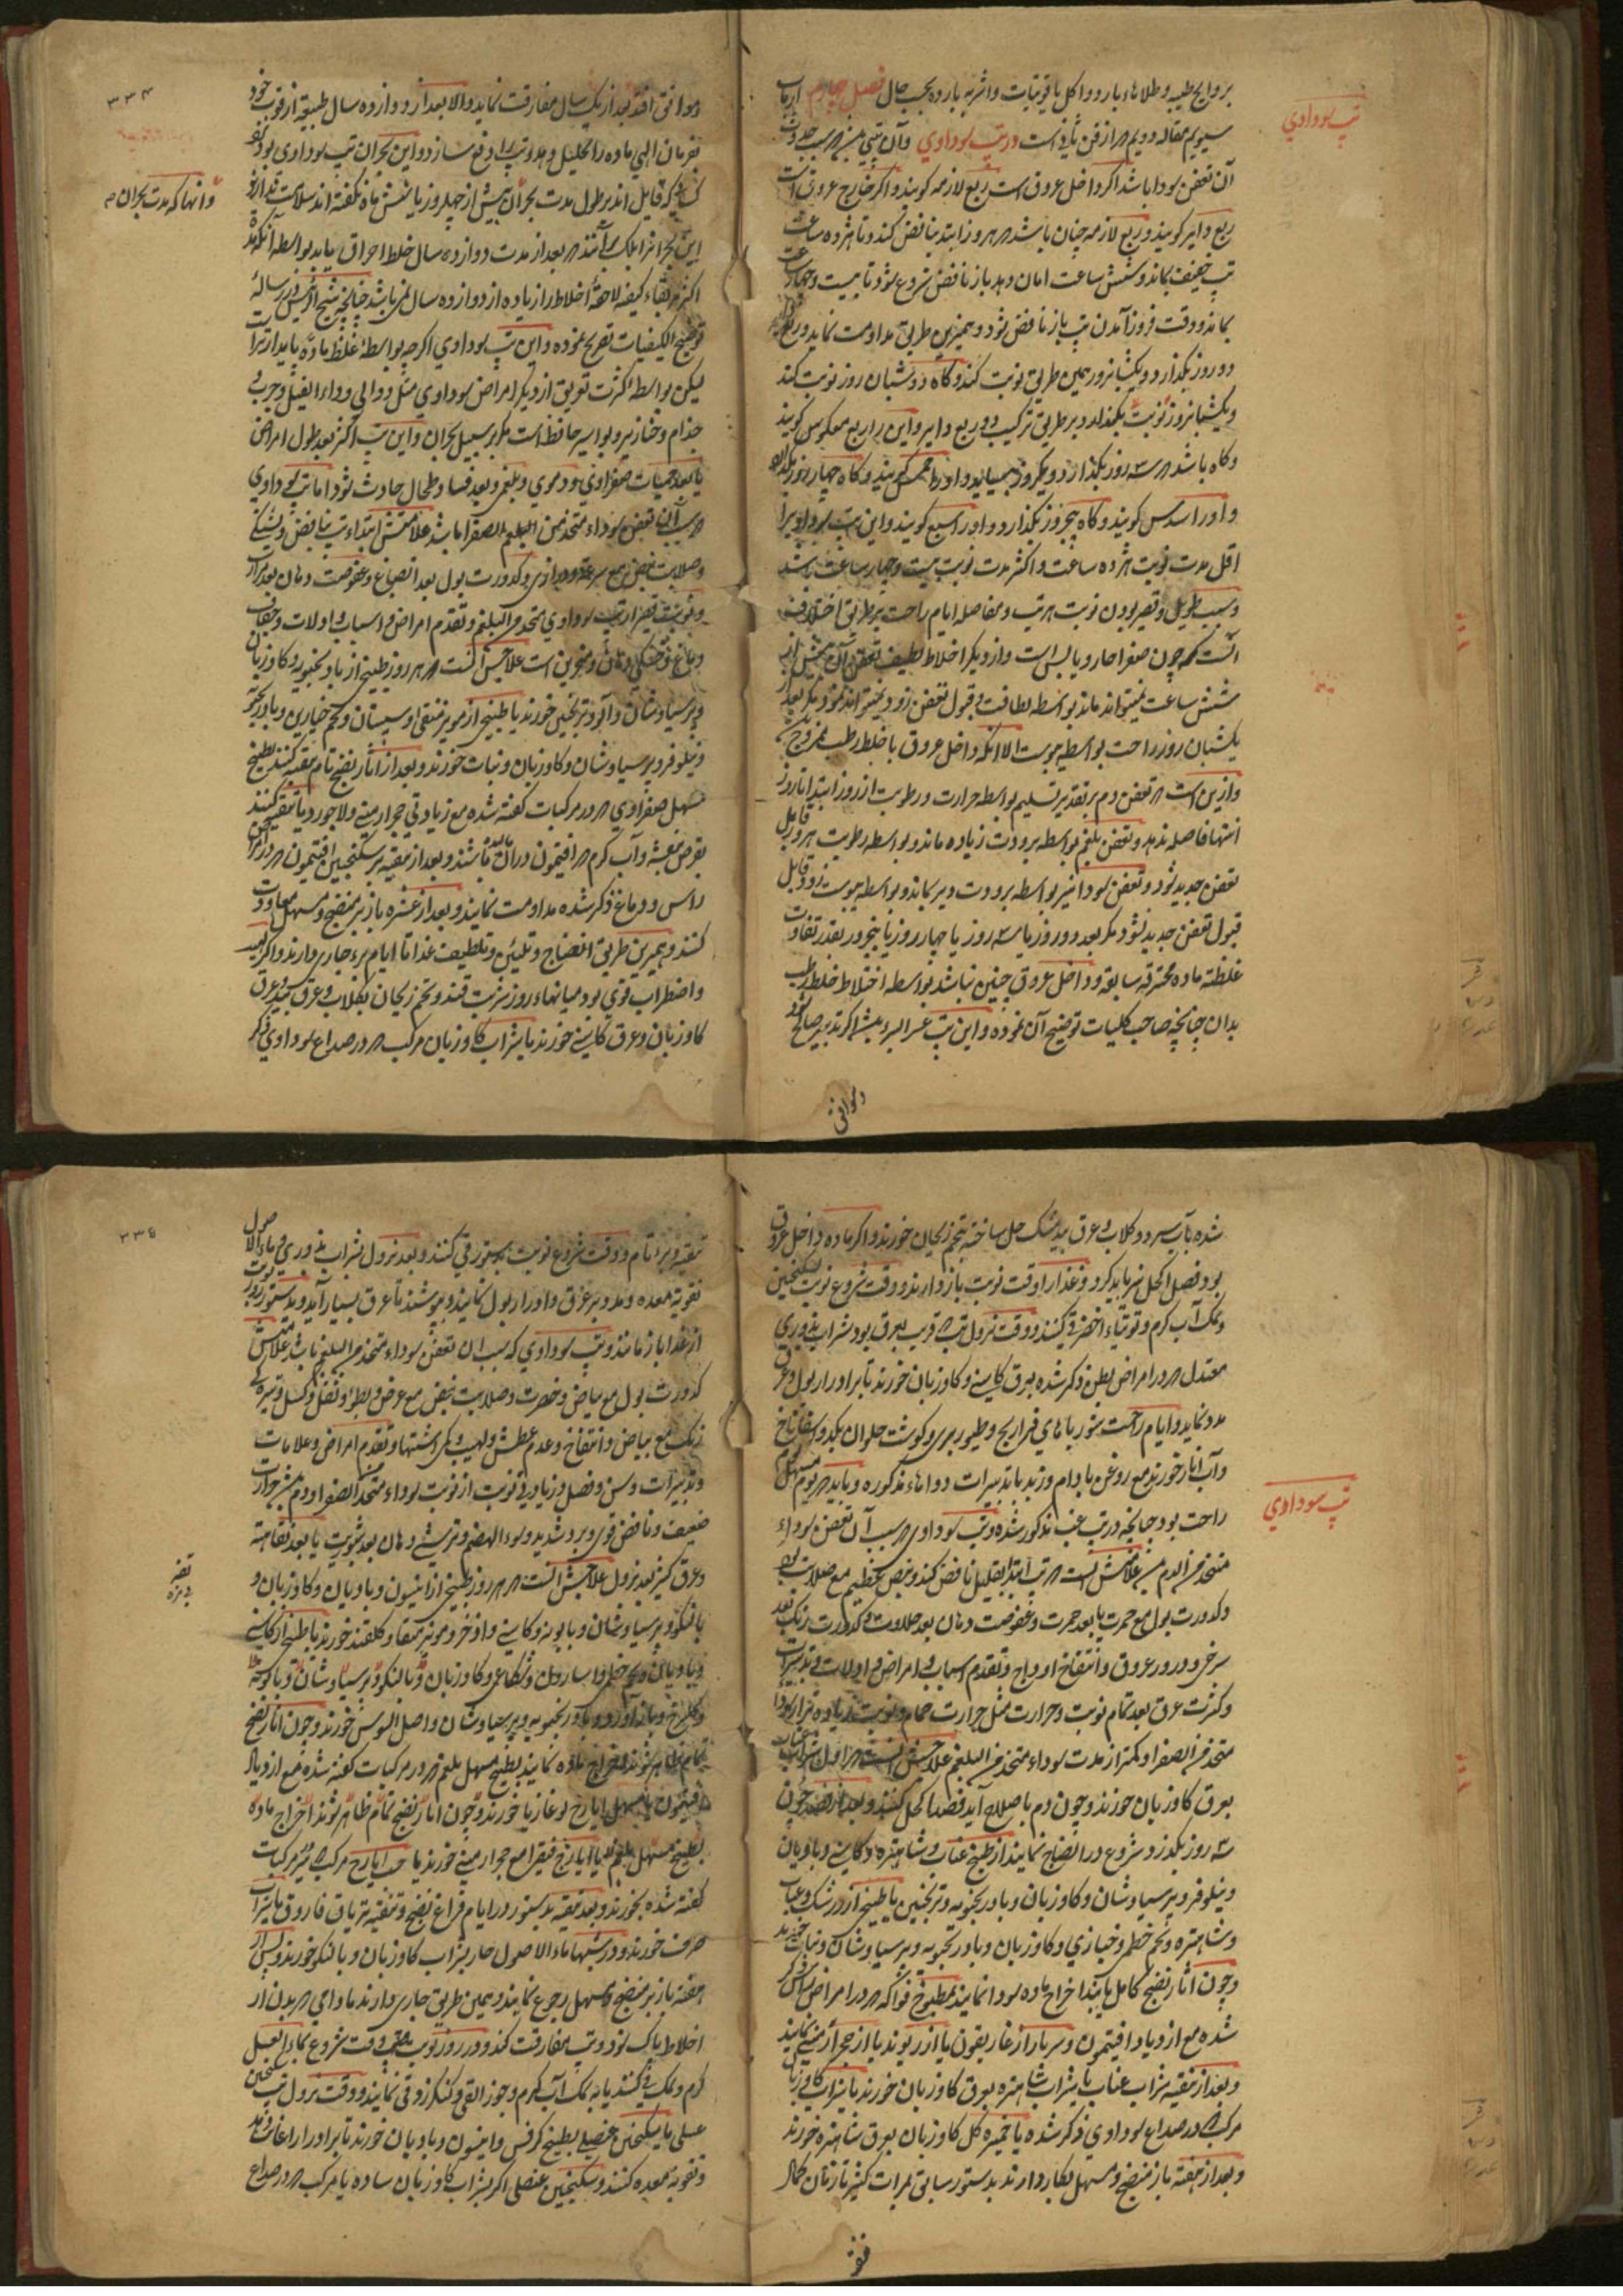 تب سوداوي
بروایح طیبه و طلاهاء بارد و اکل یاقوتیات و اشربه بارده بحسب حال فصل چهارم از باب
سیویم مقاله دویم از فن ثانی است در تب سوداوي و آن تبی
آن تعفن سودا باشد اگر داخل عروق است ربع لازمه کویند و اکر خارج عروق است
ربع دایر کویند و ربع لازمه چنان باشد که هر روز ابتدا بنافض کند و تا هژده ساعت
تب خفیف بماند و شش ساعت امان دهد باز نافض شروع شود تا بیست و چهار ساعت
بماند و وقت فرود آمدن تب باز نافض شود و همیرین طریق مداومت نماید و ربع
دو روز بگذارد و یکشبانروز بهمین طریق نوبت کند و کاه دو شبان روز نوبت کند
و یکشبانروز نوبت بگذارد و بر طریق ترکیب دو ربع دایر و این را ربع معکوس کویند
و کاه باشد که سه روز بگذارد و یکروز و او را خمس کویند و کاه چهار روز بگذارد
و او را سدس کویند و کاه پنجروز بگذارد و او را سبع کویند و این تب سوداوی را
اقل مدت نوبت هژده ساعت و اکثر مدت نوبت بیست و چهار ساعت باشد
و سبب طویل و قصیر بودن نوبت هر تب و مفاصله ایام راحت بر طریق اختلاف
آنست که چون صفرا حار و یابس است و از دیکر اخلاط لطیف تعفن آن بیش از
شش ساعت نمیتواند ماند بواسطه لطافت و قبول تعفن زود نمیتواند نمود مکر بعد
یکشبان روز راحت بواسطه یبوست الا انکه داخل عروق با خلط رطب ممزوج
و ازین است که تعفن دم بر تقدیر تسلیم بواسطه حرارت و رطوبت از روز ابتدا تا روز
انتها فاصله ندهد و تعفن بلغم بواسطه برودت زیاده ماند و بواسطه رطوبت هر روز قابل
تعفن جدید شود و تعفن سودا نیز بواسطه برودت دیر بماند و بواسطه یبوست زود قابل
قبول تعفن جدید نشود مکر بعد دو روز یا سه روز یا چهار روز یا پنجروز بقدر تفاوت
غلظة ماده محترقه سابقه و داخل عروق چنین نباشد بواسطه اختلاط خلط رطب
بدان چنانچه صاحب کلیات توضیح آن نموده و این تب عسر البرء باشد اکر تدبیر صالح
و موافق
۳۳۴
موافق افتد بعد از یک سال مفارقت نماید و الا بعد از دوازده سال طبیعة از قوت خود
بفرمان الهي ماده را تحلیل دهد و تب را دفع سازد و این بحران تب سوداوی بود
و آنها که مدت بحران
کسانی که قایل اند بر طول مدت بحران بیش از چهل روز یا شش ماه نکفته اند
این بحران را هلاک بعد از مدت دوازده سال خلط احراق یابد بواسطه آنکه مدة
اکثر بقاء کیفیه لاحقه اخلاط را زیاده از دوازده سال نمی باشد چنانچه شیخ الرئیس در رساله
توضیح الکیفیات تصریح نموده و این تب سوداوي اکرچه بواسطه غلظ ماده پایدار است
لیکن بواسطه کثرت تعویق از دیکر امراض سوداوي مثل دوالي و داء الفیل و جرب و
جذام و خنازیر و بواسیر حافظ است مکر بر سبیل بحران و این تب اکثر بعد طول امراض
یا بعد حمیات صفراوي و دموي و بلغمي و بعد فساد طحال حادث شود اما تب سوداوي
که سبب آن تعفن سوداء متحذ من البلغم الصفرا باشد علامتش ابتداء تب بنافض و
و صلابت نبض مع سرعة و درازي و کدورت بول بعد انصباغ و عفوصت دهان بعد مرارت
و نوبت قصیر از تب سوداوي متخذ من البلغم و تقدم امراض و اسباب و اولات و جفاف
دماغ و خشکي دهان و منخرین است علاجش آنست که هر روز طبیخي از بادرنجبویه و کاوزبان
و پرسیاوشان و آلو و ترنجبین خورند یا طبیخي از مویز منقی و سپستان و تخم خیارین و بادرنجبو
و نیلوفر و پرسیاوشان و کاوزبان و نبات خورند و بعد از آثار نضج تام تنقیه کنند بطبیخ
مسهل صفراوي که در مرکبات کفته شده مع زیادتي حجر ارمني و لاجورد یا تنقیه کنند
بقرص بنفشه و آب کرم که افتیمون دران مالیده باشند و بعد از تنقیه بر سکنجبین افتیمون که در امراض
راس و دماغ ذکر شده مداومت نمایند و بعد از عشره باز بر منضج و مسهل معاودت
کنند و همیرین طریق انضاج و تلیین و تلطیف غذا تا ایام برء جاري دارند و اکر لهیب
و اضطراب قوي بود میانهاء روز شربت قند و تخم ریحان بکلاب و عرق بید و عرق
کاوزبان و عرق کاسنی خورند یا شراب کاوزبان مرکب که در صداع سوداوي ذکر
تب سوداوي
شده بآب سرد و کلاب و عرق بید مشک حل ساخته بتخم ریحان خورند و اکر ماده داخل عروق
بود فصد اکحل نیز باید کرد و غذا را وقت نوبت باز دارند و وقت شروع نوبت بسکنجبین
و نمک آب کرم و توتیاء اخضر قی کنند و وقت نزول تب که قریب بعرق بود شراب بزوري
معتدل که در امراض بطن ذکر شده بعرق کاسني و کاوزبان خورند تا بر ادرار بول و عرق
مدد نماید و ایام راحت شورباهاي فراریج و طیور بري و کوشت حلوان بکدو و اسفاناخ
و آب انار خورند مع روغن بادام و زبد با تدبیرات دواهاء مذکوره و باید که یوم مسهل
راحت بود چنانچه در تب غب مذکور شده و تب سوداوي که سبب آن تعفن سوداء
متخذ من الدم علامتش آنست که تب ابتدا بقلیل نافض کند و نبض عظیم مع صلابت بود
و کدورت بول مع حمرت یا بعد حمرت و عفوصت دهان بعد حلاوت و کدورت رنک بعد
سرخي و درور عروق و انتفاخ اوداج و تقدم اسباب و امراض و اولات و تدبیرات
و کثرت عرق بعد تمام نوبت و حرارت مثل حرارت حمام و نوبت زیاده تر از سوداء
متخذ من الصفرا و کمتر از مدت سوداء متخذ من البلغم علاجش آنست که اول شراب عناب
بعرق کاوزبان خورند و چون دم باصلاح آید فصد اکحل کنند و بعد از فصد چون
سه روز بگذرد شروع در انضاج نمایند از طبیخ عناب و شاهتره و کاسني و بادیان
و نیلوفر و پرسیاوشان و کاوزبان و بادرنجبویه و ترنجبین یا طبیخي از زرشک و عناب
و شاهتره و تخم خطمي و خبازي و کاوزبان و بادرنجبویه و پرسیاوشان و نبات خورند
و چون آثار نضج کامل یابند اخراج ماده سودا نمایند بمطبوخ فواکه که در امراض راس ذکر
شده مع ازدیاد افتیمون و سر بار از غاریقون یا از ریوند یا از حجر ارمني نمایند
و بعد از تنقیه شراب عناب یا شراب شاهتره بعرق کاوزبان خورند یا شراب کاوزبان
مرکب که در صداع سوداوي ذکر شده یا خمیره کل کاوزبان بعرق شاهتره خورند
و بعد از هفته باز منضج و مسهل بکار دارند بدستور سابق بمرات کثیر تا زمان کمال
تنقیه
۳۳۵
تنقیه و برء تام و وقت شروع نوبت بدستور قي کنند و بعد نزول شراب بزوري و ماء الاصول
تقویة معده و مدد بر عرق و ادرار بول نمایند و بپوشند تا عرق بسیار آید و بدستور روز نوبت
از غذا باز مانند و تب سوداوي که سبب آن تعفن سوداء متخذ من البلغم باشد علامتش
کدورت بول مع بیاض و خضرت و صلابت نبض مع عرض و بطؤ و ثقل و کسل و تیره کي
رنک مع بیاض و انتفاخ و عدم عطش و لهیب و کمي اشتها و تقدم امراض و علامات
و تدبیرات و سن و فصل و زیادتي نوبت از نوبت سوداء متخذ من الصفرا و دم و حرارت
ضعیف و نافض قوي و برد شدید و سوء الهضم و ترشي دهان بعد شوریت یا بعد تفاهة
و عرق کثیر بعد نزول علاجش آنست که هر روز طبیخي از انیسون و بادیان و کاوزبان و
بالنکو و پرسیاوشان و بابونه و کاسني و اذخر و مویز منقا و کلقند خورند یا طبیخ از کاسني
و بادیان و تخم خطمي و اسارون و شکاعي و کاوزبان و بالنکو و پرسیاوشان و بابونه
و کلسرخ و بادآورد و بادرنجبویه و پرسیاوشان و اصل السوس خورند و چون آثار نضج
تمام ظاهر شود اخراج ماده نمایند بطبیخ مسهل بلغم که در مرکبات کفته شده مع ازدیاد
افتیمون یا مسهل ایارج لوغاذیا خورند و چون آثار نضج تمام ظاهر شوند اخراج ماده
بطبیخ مسهل بلغم یا ایارج فیقرا مع حجر ارمني خورند یا حب ایارج مرکب که در مرکبات
کفته شده بخورند و بعد تنقیه بدستور در ایام فراغ نضج و تنقیه تریاق فاروق یا شراب
صرف خورند و در شبها ماء الاصول حار بشراب کاوزبان و بالنکو خورند و پس از
هفته باز بر منضج و مسهل رجوع نمایند و بهمین طریق جاري دارند مادامي که بدن از
اخلاط پاک شود و تب مفارقت کند و در روز نوبت وقت شروع بماء العسل
کرم و نمک قي کنند یا به نمک آب کرم و جوز القي و کنکرزد قي نمایند و وقت نزول تب سکنجبین
عسلي یا سکنجبین عنصلي بطبیخ کرفس و انیسون و بادیان خورند تا بر ادرار اعانت نماید
و تقویة معده کنند و سکنجبین عنصلي اکر بشراب کاوزبان ساده یا مرکب که در صداع